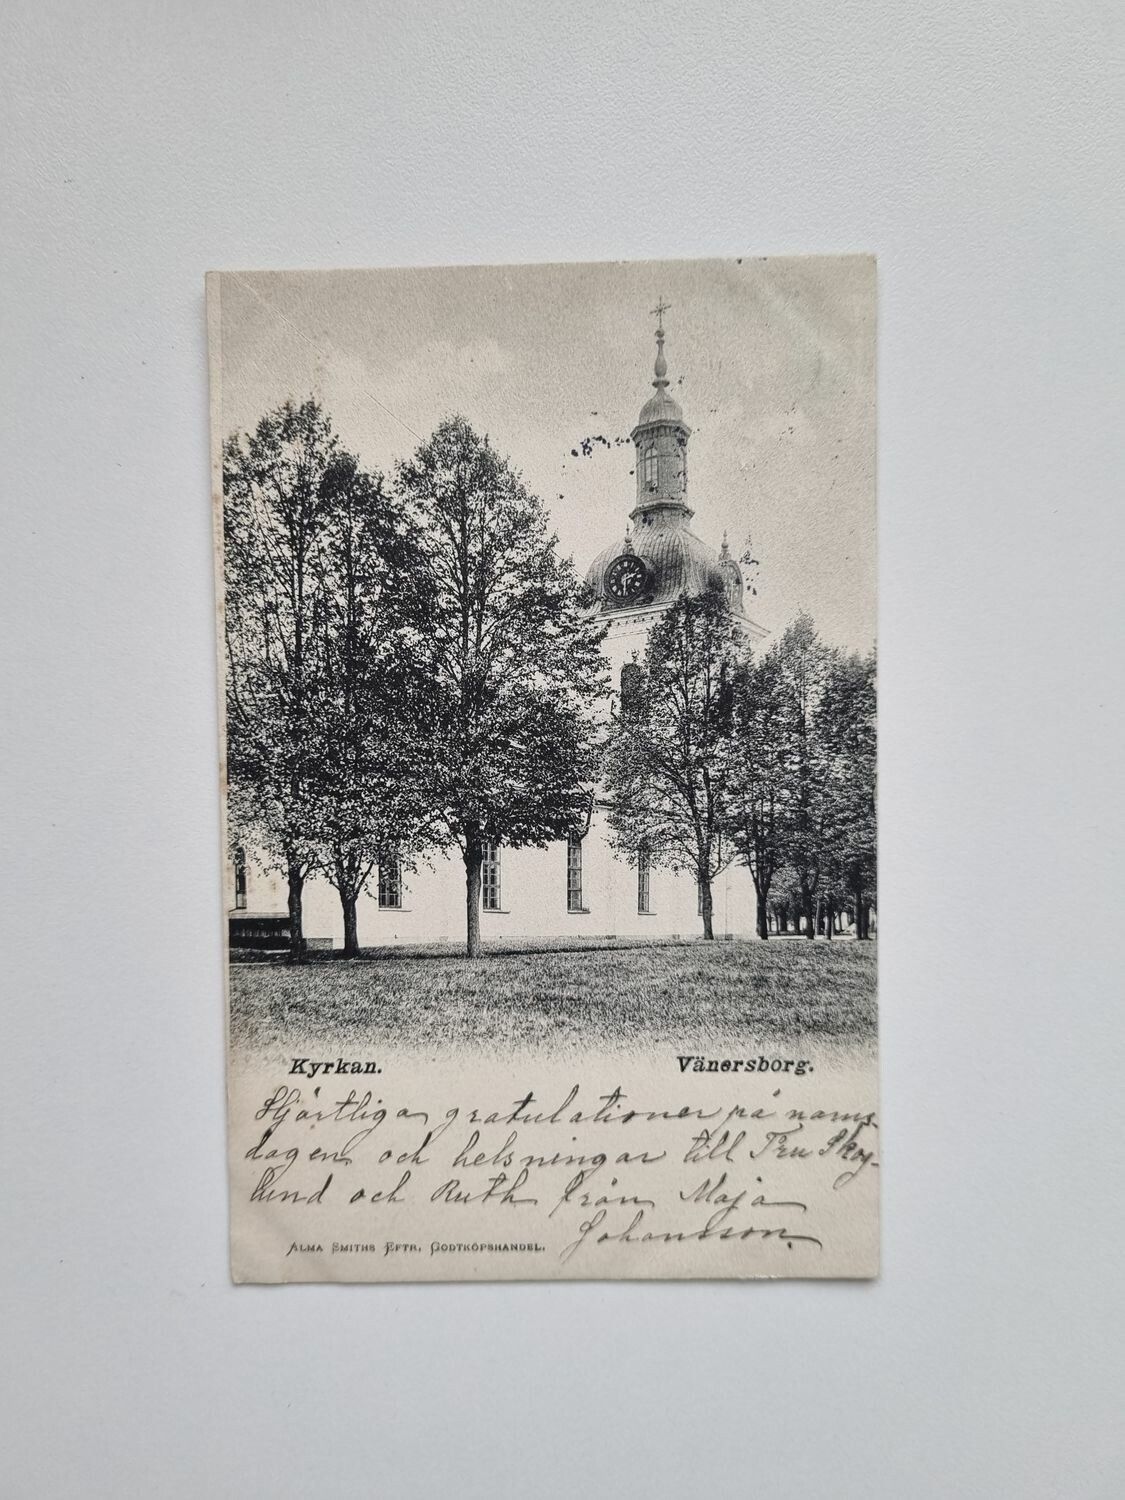 Kyrkan. Vänersborg.
Hjärtliga gratulationer på namns-
dagen och helsningar till Fru Skog-
lund och Ruth från Maja
Johansson.
ALMA SMITHS EFTR, GODTKÖPSHANDEL.